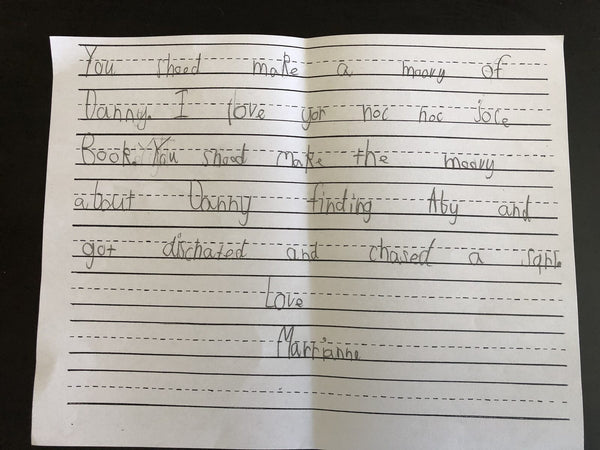 You shoed make a moovy of
Danny. I love yor noc noc joce
Book. You shoed make the moovy
about Danny finding Aby and
got dischated and chased a sqhle
Love
Marrianne